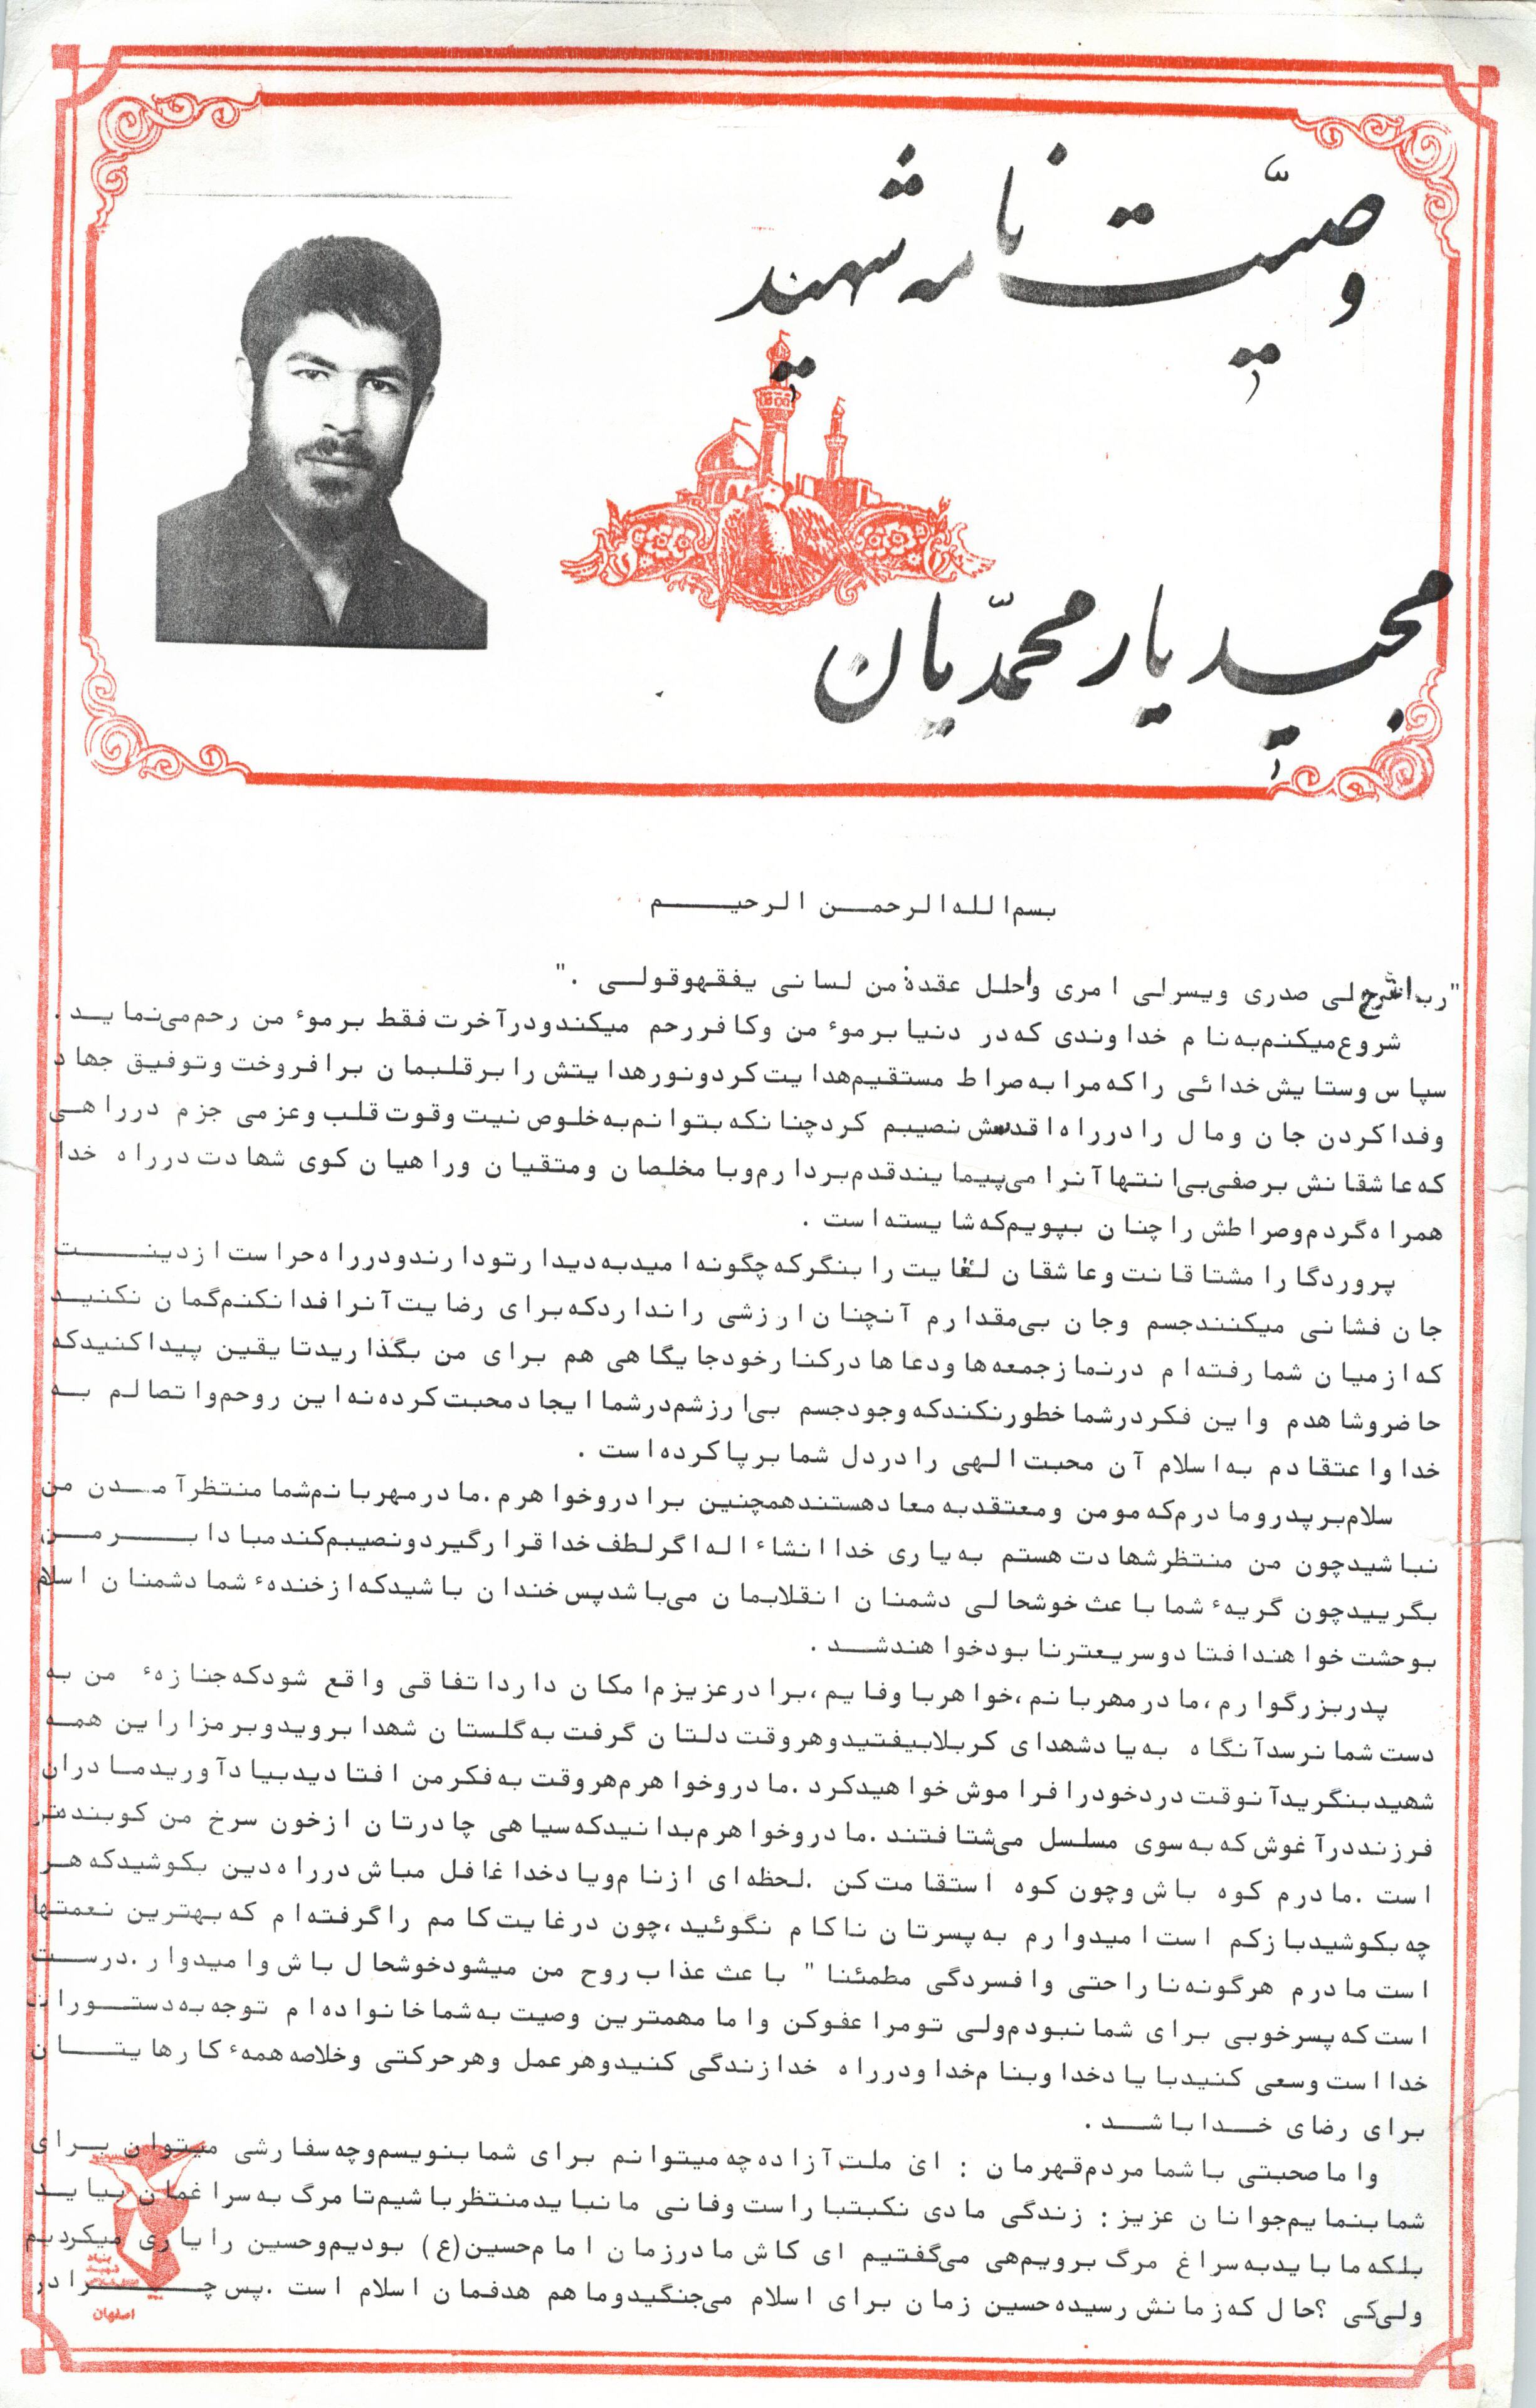 وصیّت نامه شهید
مجید یارمحمّدیان
بسم الله الرحمن الرحیم
"رب اشرح لی صدری ویسرلی امری واحلل عقدة من لسانی یفقهوقولی ."
شروع میکنم به نام خداوندی که در دنیا برموٴمن وکافررحم میکندودرآخرت فقط برموٴمن رحم می‌نماید .
سپاس وستایش خدائی راکه مرا به صراط مستقیم هدایت کردونورهدایتش را برقلبمان برافروخت وتوفیق جهاد
وفداکردن جان ومال را درراه اقدسش نصیبم کردچنانکه بتوانم به خلوص نیت وقوت قلب وعزمی جزم درراهی
که عاشقانش برصفی بی‌انتها آنرا می‌پیمایندقدم بردارم وبا مخلصان ومتقیان وراهیان کوی شهادت درراه خدا
همراه گردم وصراطش راچنان بپویم که شایسته است .
پروردگارا مشتاقانت وعاشقان لقایت را بنگرکه چگونه امیدبه دیدارتودارندودرراه حراست ازدینت
جان فشانی میکنندجسم وجان بی‌مقدارم آنچنان ارزشی رانداردکه برای رضایت آنرا فدانکنم گمان نکنید
که ازمیان شما رفته‌ام درنمازجمعه‌ها ودعاها درکنارخودجایگاهی هم برای من بگذاریدتا یقین پیداکنیدکه
حاضروشاهدم واین فکردرشما خطورنکندکه وجودجسم بی‌ارزشم درشما ایجادمحبت کرده نه این روحم واتصالم به
خدا واعتقادم به اسلام آن محبت الهی رادردل شما برپاکرده است .
سلام برپدرومادرم که مومن ومعتقدبه معادهستندهمچنین برادروخواهرم .مادرمهربانم شما منتظرآمدن من
نباشیدچون من منتظرشهادت هستم به یاری خدا انشاء اله اگرلطف خدا قرارگیردونصیبم کندمبادا برمن
بگرییدچون گریهٴ شما باعث خوشحالی دشمنان انقلابمان می‌باشدپس خندان باشیدکه ازخندهٴ شمادشمنان اسلام
بوحشت خواهندافتادوسریعترنابودخواهندشد .
پدربزرگوارم ،مادرمهربانم ،خواهرباوفایم ،برادرعزیزم امکان دارداتفاقی واقع شودکه جنازهٴ من به
دست شمانرسدآنگاه به یادشهدای کربلابیفتیدوهروقت دلتان گرفت به گلستان شهدا برویدوبرمزاراین همه
شهیدبنگریدآنوقت دردخودرافراموش خواهیدکرد .مادروخواهرم هروقت به فکرمن افتادیدبیادآوریدمادران
فرزنددرآغوش که به سوی مسلسل می‌شتافتند .مادروخواهرم بدانیدکه سیاهی چادرتان ازخون سرخ من کوبنده‌تر
است .مادرم کوه باش وچون کوه استقامت کن .لحظه‌ای ازنام ویادخدا غافل مباش درراه دین بکوشیدکه هر
چه بکوشیدبازکم است امیدوارم به پسرتان ناکام نگوئید،چون درغایت کامم راگرفته‌ام که بهترین نعمتها
است مادرم هرگونه ناراحتی وافسردگی مطمئنا" باعث عذاب روح من میشودخوشحال باش وامیدوار .درست
است که پسرخوبی برای شمانبودم ولی تومراعفوکن واما مهمترین وصیت به شماخانواده‌ام توجه به دستورات
خدا است وسعی کنیدبا یادخدا وبنام خدا ودرراه خدازندگی کنیدوهرعمل وهرحرکتی وخلاصه همهٴ کارهایتان
برای رضای خدا باشد .
واما صحبتی باشما مردم قهرمان : ای ملت آزاده چه میتوانم برای شما بنویسم وچه سفارشی میتوان برای
شما بنمایم جوانان عزیز : زندگی مادی نکبتباراست وفانی مانبایدمنتظرباشیم تا مرگ به سراغمان بیاید
بلکه ما بایدبه سراغ مرگ برویم هی می‌گفتیم ای کاش مادرزمان امام حسین(ع) بودیم وحسین رایاری میکردیم
ولی‌کی ؟حال که زمانش رسیده حسین زمان برای اسلام می‌جنگیدوما هم هدفمان اسلام است .پس چرا در
بنیاد
شهید
اصفهان